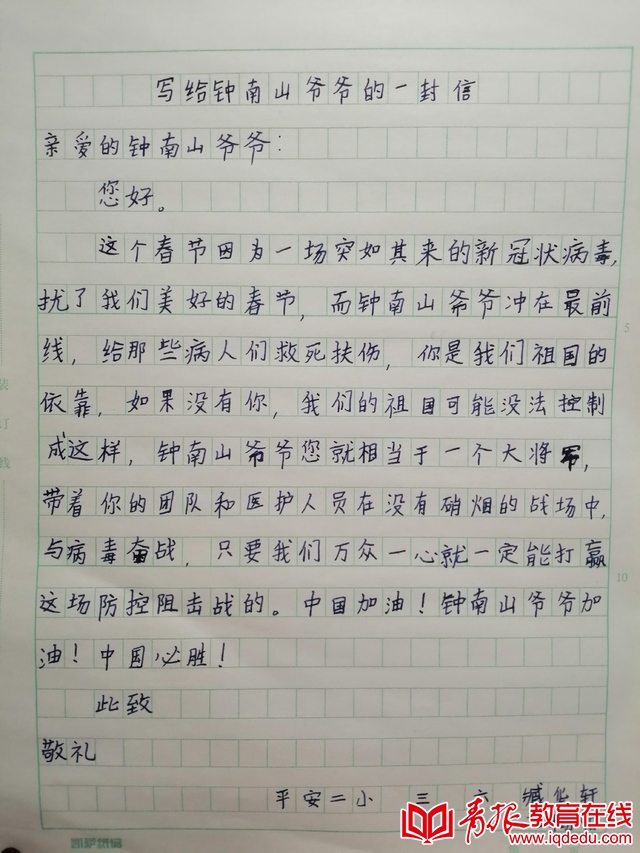 写给钟南山爷爷的一封信
亲爱的钟南山爷爷:
您好。
这个春节因为一场突如其来的新冠状病毒,
扰了我们美好的春节,而钟南山爷爷冲在最前
线,给那些病人们救死扶伤,你是我们祖国的
依靠,如果没有你,我们的祖国可能没法控制
成这样,钟南山爷爷您就相当于一个大将军,
带着你的团队和医护人员在没有硝烟的战场中,
与病毒奋战,只要我们万众一心就一定能打赢
这场防控阻击战的。中国加油!钟南山爷爷加
油!中国必胜!
此致
敬礼
平安二小 三 六 臧华轩
装
订
线
5
10
青报教育在线
www.iqdedu.com